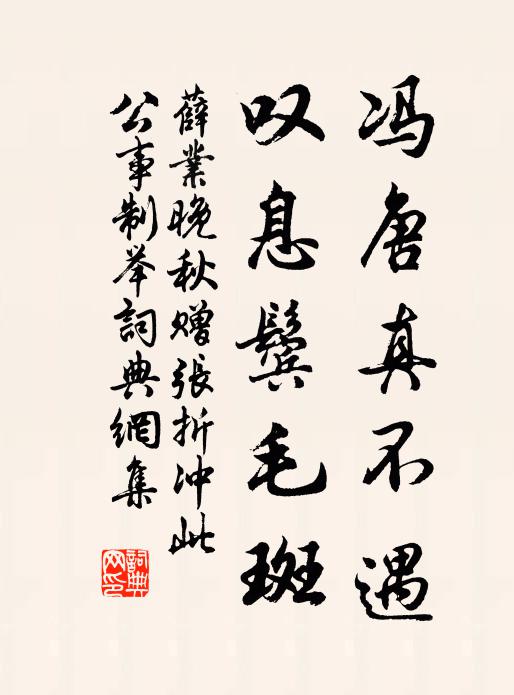 冯唐真不遇
叹息鬓毛斑
薛業晚秋赠張折冲此
公事制举詞典網集
詞典网印